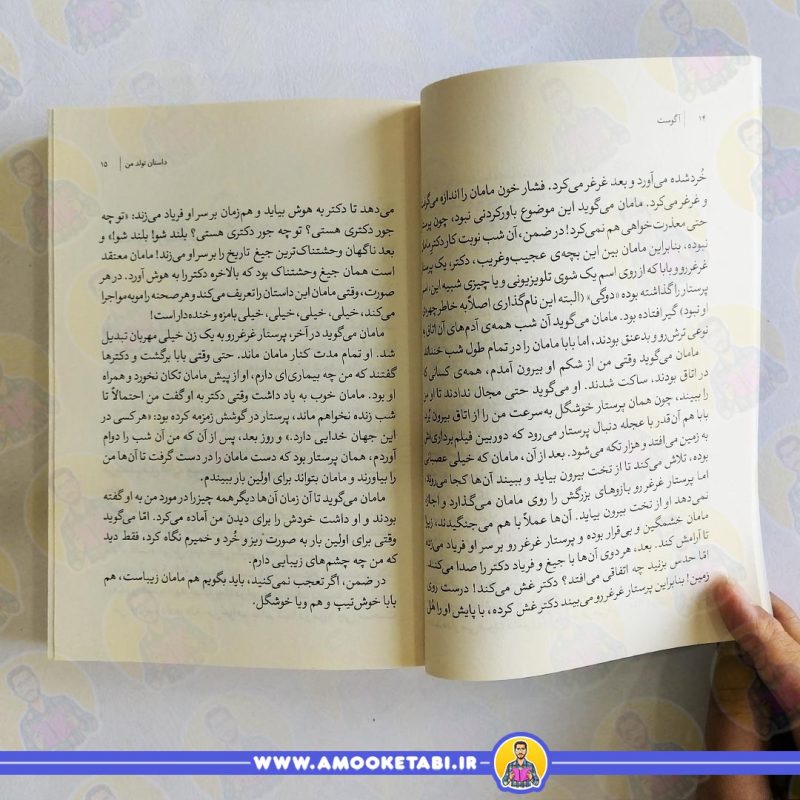 ۱۴ | آگوست
خُردشده می‌آورد و بعد غرغر می‌کرد. فشار خون مامان را اندازه می‌گرفت
و غرغر می‌کرد. مامان می‌گوید این موضوع باورکردنی نبود، چون پرستار
حتی معذرت‌خواهی هم نمی‌کرد! در ضمن، آن شب نوبت کار دکتر مامان
نبوده، بنابراین مامان بین این بچه‌ی عجیب‌وغریب، دکتر، یک پرستار
غرغررو و بابا که از روی اسم یک شوی تلویزیونی و یا چیزی شبیه این، اسم
پرستار را گذاشته بوده «دوگی» (البته این نام‌گذاری اصلاً به خاطر چهره‌ی
او نبود) گیر افتاده بود. مامان می‌گوید آن شب همه‌ی آدم‌های آن اتاق،
نوعی ترش‌رو و بدعنق بودند، اما بابا مامان را در تمام طول شب خنداند.
مامان می‌گوید وقتی من از شکم او بیرون آمدم، همه‌ی کسانی که
در اتاق بودند، ساکت شدند. او می‌گوید حتی مجال ندادند تا او من
را ببیند، چون همان پرستار خوشگل به‌سرعت من را از اتاق بیرون بُرد.
بابا هم آن‌قدر با عجله دنبال پرستار می‌رود که دوربین فیلم‌برداری‌اش
به زمین می‌افتد و هزار تکه می‌شود. بعد از آن، مامان که خیلی عصبانی
بوده، تلاش می‌کند تا از تخت بیرون بیاید و ببیند آن‌ها کجا می‌روند،
اما پرستار غرغررو بازوهای بزرگش را روی مامان می‌گذارد و اجازه
نمی‌دهد او از تخت بیرون بیاید. آن‌ها عملاً با هم می‌جنگیدند، زیرا
مامان خشمگین و بی‌قرار بوده و پرستار غرغررو بر سر او فریاد می‌زده
تا آرامش کند. بعد، هر دوی آن‌ها با جیغ و فریاد دکتر را صدا می‌کنند.
امّا حدس بزنید چه اتفاقی می‌افتد؟ دکتر غش می‌کند! درست روی
زمین! بنابراین پرستار غرغررو می‌بیند دکتر غش کرده، با پایش او را هُل
داستان تولد من | ۱۵
می‌دهد تا دکتر به هوش بیاید و هم‌زمان بر سر او فریاد می‌زند: «تو چه
جور دکتری هستی؟ تو چه جور دکتری هستی؟ بلند شو! بلند شو!» و
بعد ناگهان وحشتناک‌ترین جیغ تاریخ را بر سر او می‌زند! مامان معتقد
است همان جیغ وحشتناک بود که بالاخره دکتر را به هوش آورد. در هر
صورت، وقتی مامان این داستان را تعریف می‌کند و هر صحنه را موبه‌مو اجرا
می‌کند، خیلی، خیلی، خیلی، خیلی، خیلی بامزه و خنده‌دار است!
مامان می‌گوید در آخر، پرستار غرغررو به یک زن خیلی مهربان تبدیل
شد. او تمام مدت کنار مامان ماند. حتی وقتی بابا برگشت و دکترها
گفتند که من چه بیماری‌ای دارم، او از پیش مامان تکان نخورد و همراه
او بود. مامان خوب به یاد داشت وقتی دکتر به او گفت من احتمالاً تا
شب زنده نخواهم ماند، پرستار در گوشش زمزمه کرده بود: «هر کسی در
این جهان خدایی دارد.» و روز بعد، پس از آن که من آن شب را دوام
آوردم، همان پرستار بود که دست مامان را در دست گرفت تا آن‌ها من
را بیاورند و مامان بتواند برای اولین بار ببیندم.
مامان می‌گوید تا آن زمان آن‌ها دیگر همه چیز را در مورد من به او گفته
بودند و او داشت خودش را برای دیدن من آماده می‌کرد. امّا می‌گوید
وقتی برای اولین بار به صورت رٓیز و خُرد و خمیرم نگاه کرد، فقط دید
که من چه چشم‌های زیبایی دارم.
در ضمن، اگر تعجب نمی‌کنید، باید بگویم هم مامان زیباست، هم
بابا خوش‌تیپ و هم ویا خوشگل.
WWW.AMOOKETABI.IR